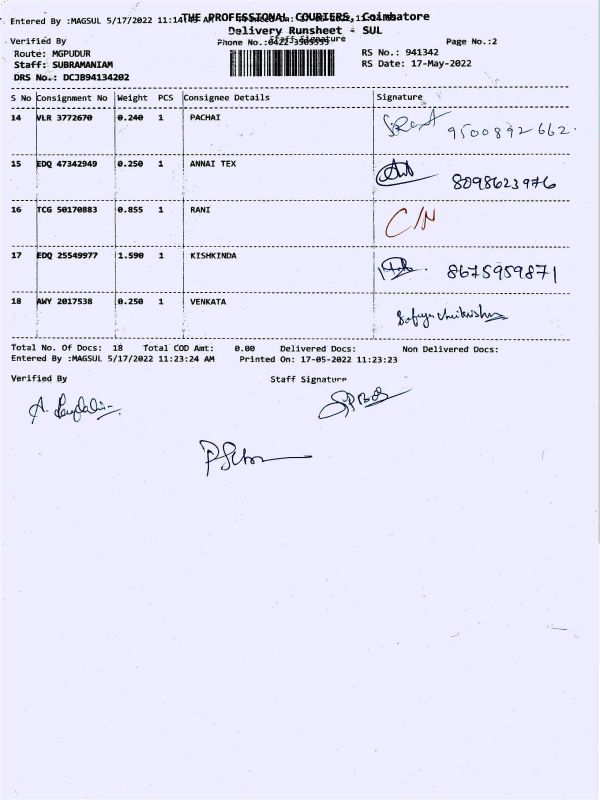 THE PROFESSIONAL COURIERS, Coimbatore
Entered By :MAGSUL 5/17/2022 11:14: AM
Delivery Runsheet - SUL
Verified By
Staff Signature
Phone No.:0422- Page No.:2
Route: MGPUDUR RS No.: 941342
Staff: SUBRAMANIAM RS Date: 17-May-2022
DRS No.: DCJB94134202
S No Consignment No Weight PCS Consignee Details Signature
14 VLR 3772670 0.240 1 PACHAI 9500892662.
15 EDQ 47342949 0.250 1 ANNAI TEX 8098623976
16 TCG 50170883 0.855 1 RANI C/N
17 EDQ 25549977 1.590 1 KISHKINDA 8675959871
18 AWY 2017538 0.250 1 VENKATA
Total No. Of Docs: 18 Total COD Amt: 0.00 Delivered Docs: Non Delivered Docs:
Entered By :MAGSUL 5/17/2022 11:23:24 AM Printed On: 17-05-2022 11:23:23
Verified By Staff Signature